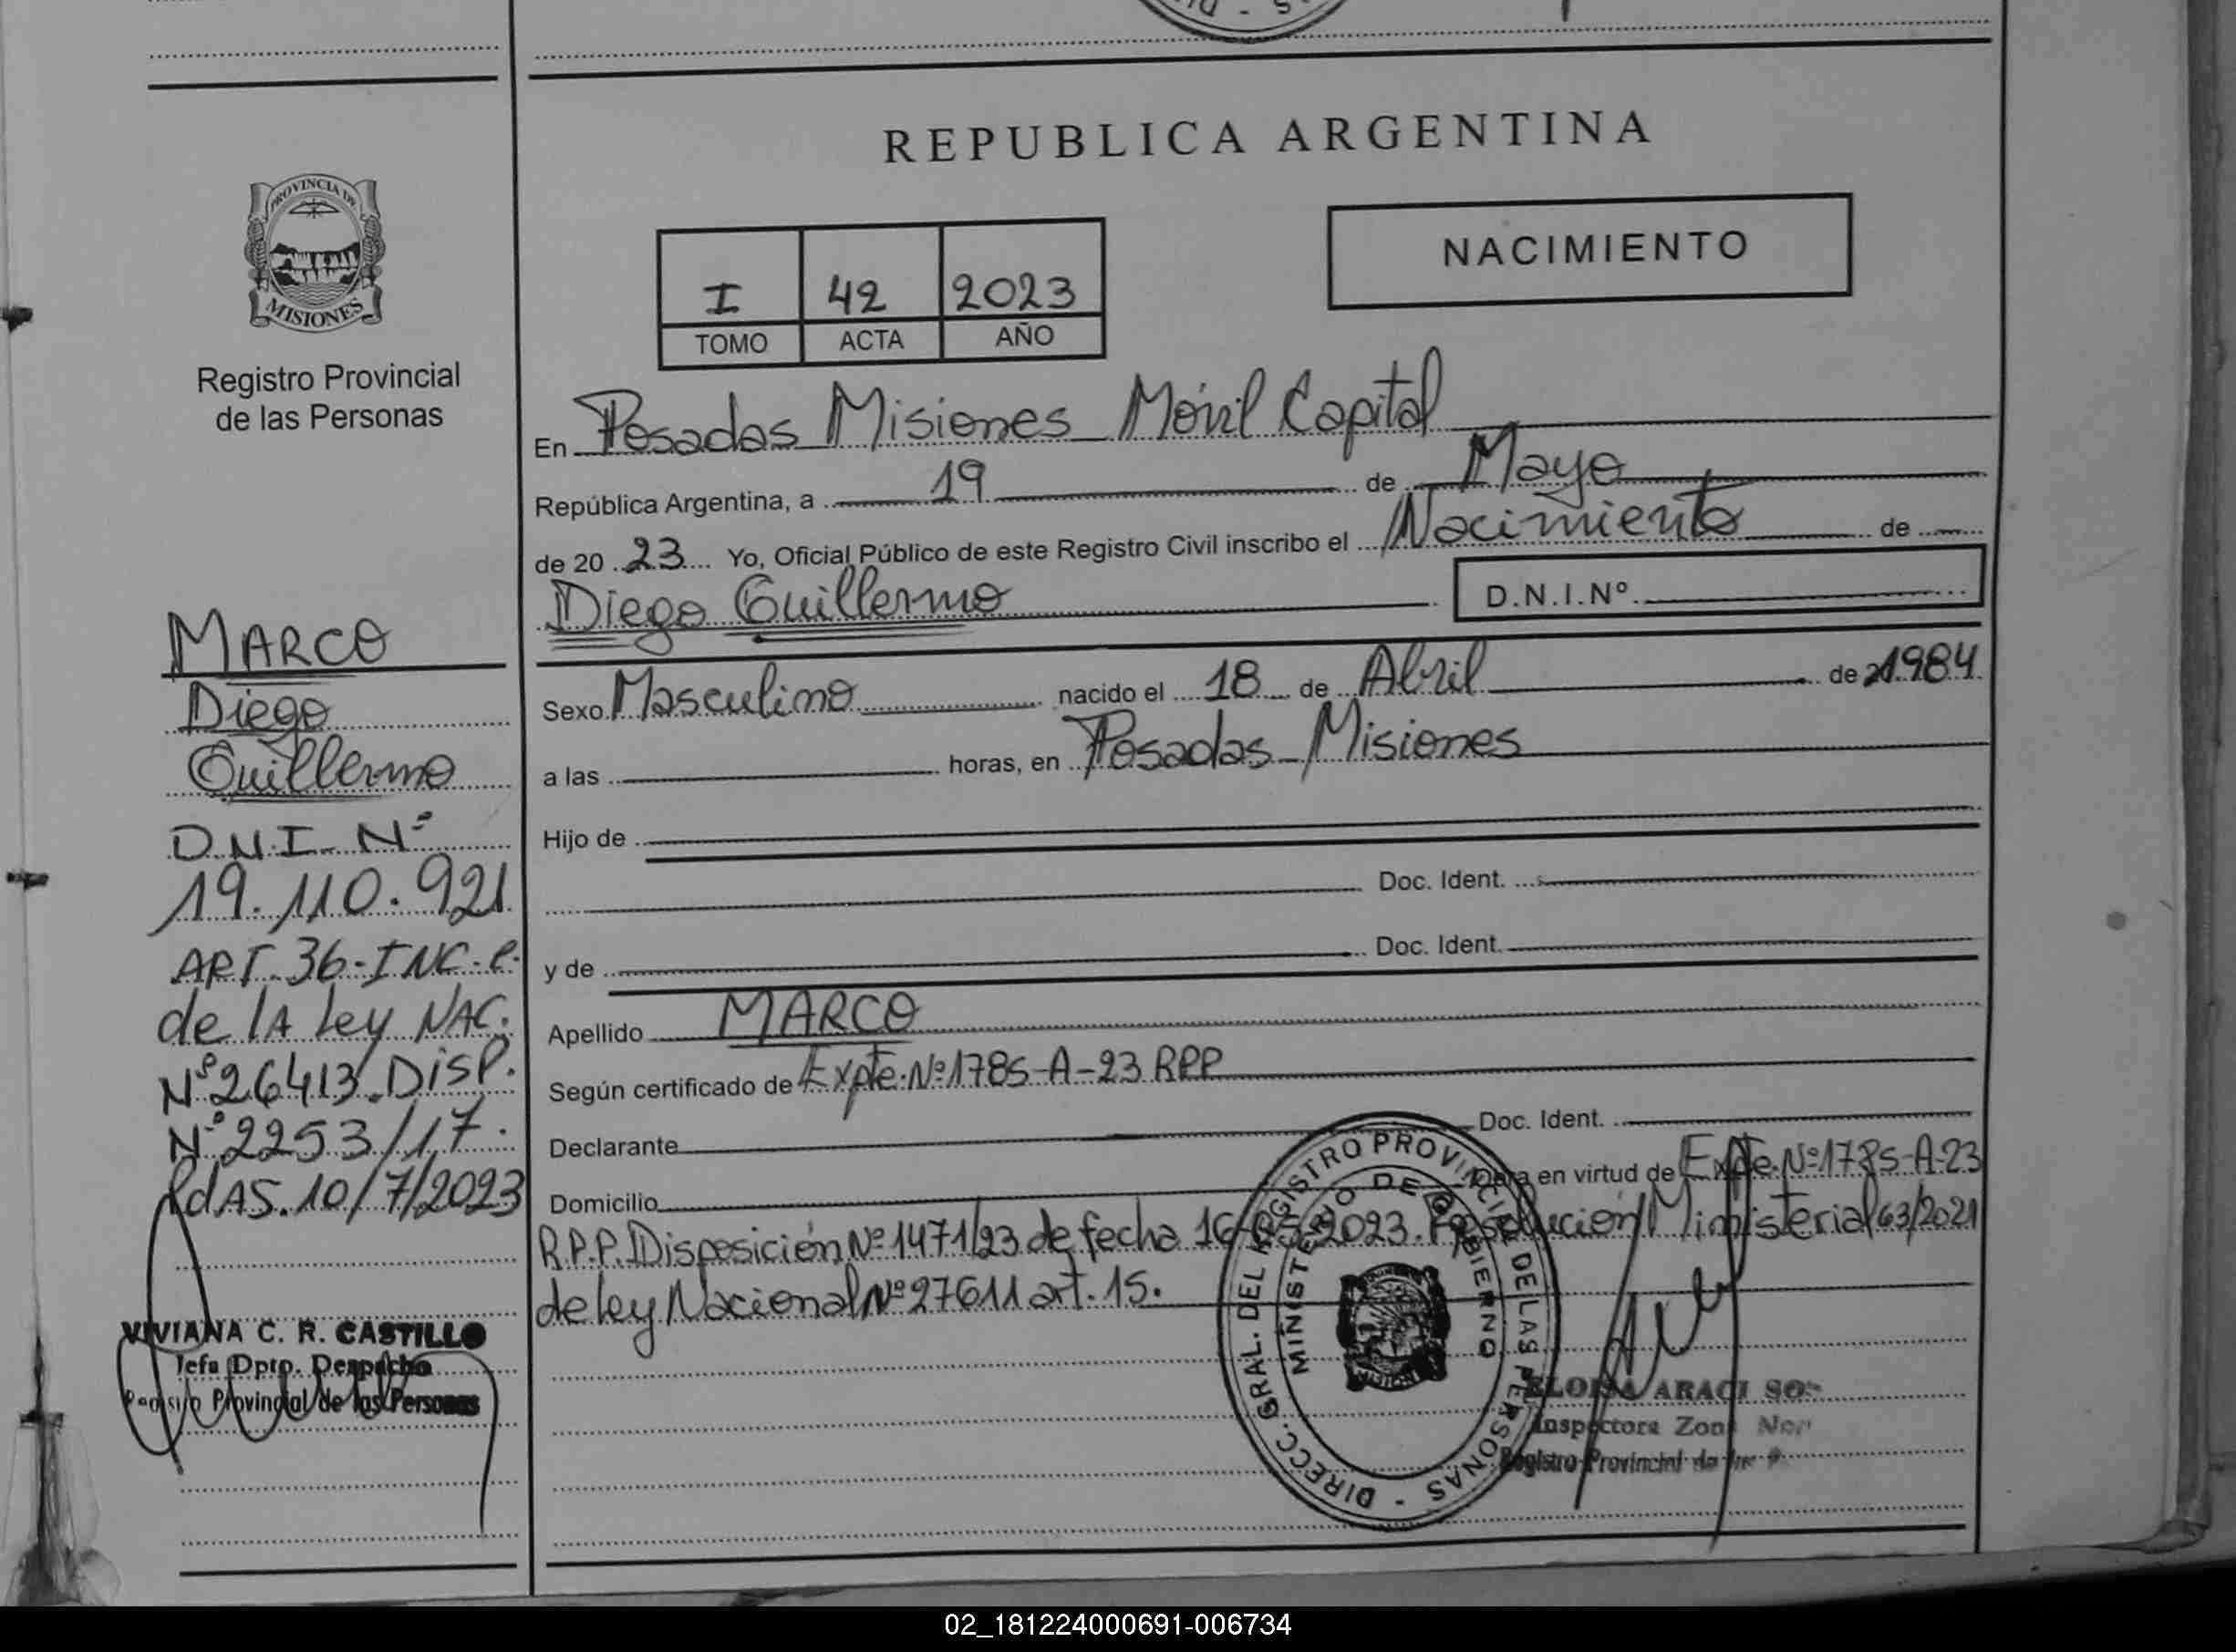 REPUBLICA ARGENTINA
PROVINCIA DE
MISIONES
Registro Provincial
de las Personas
NACIMIENTO
I 42 2023
TOMO ACTA AÑO
En Posadas Misiones Móvil Capital
República Argentina, a 19 de Mayo
de 20 23 Yo, Oficial Público de este Registro Civil inscribo el Nacimiento de
Diego Guillermo D.N.I.Nº
Sexo Masculino nacido el 18 de Abril de 1984
a las horas, en Posadas Misiones
Hijo de
Doc. Ident.
y de Doc. Ident.
Apellido MARCO
Según certificado de Expte. Nº 1785-A-23 RPP
Declarante Doc. Ident.
Domicilio en virtud de Expte. Nº 1785-A-23
R.P.P. Disposición Nº 1471/23 de fecha 16-05-2023. Resolución Ministerial 63/2021
de ley Nacional Nº 27611 art. 15.
MARCO
Diego
Guillermo
D.N.I. Nº
19.110.921
ART. 36-INC. e.
de lA Ley NAC.
Nº 26413. DISP.
Nº 2253/17.
PdAS. 10/7/2023
VIVIANA C. R. CASTILLO
Jefa Dpto. Despacho
Registro Provincial de las Personas
DIRECC. GRAL. DEL REGISTRO PROVINCIAL DE LAS PERSONAS -
MINISTERIO DE GOBIERNO
ELOISA ARACI
Inspectora Zona
Registro Provincial de
02_181224000691-006734